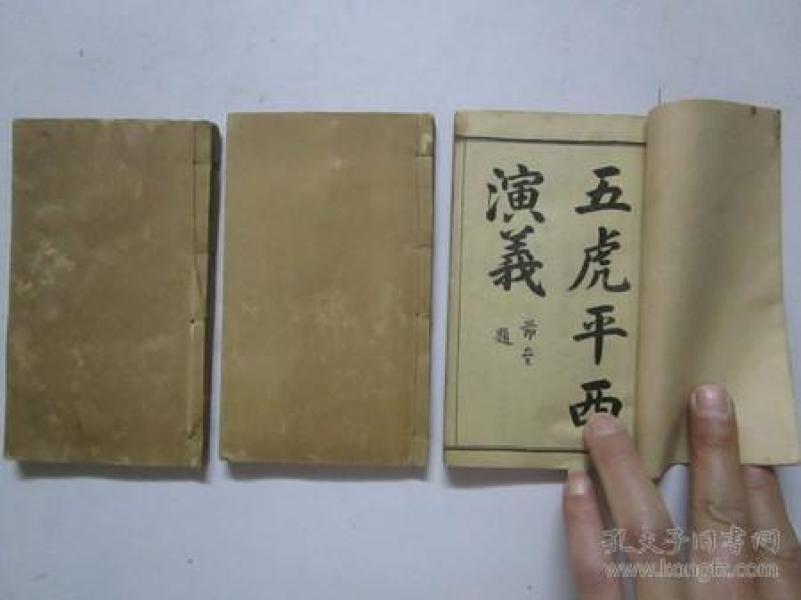 五虎平西
演義
題
孔夫子旧书网
www.kongfz.com